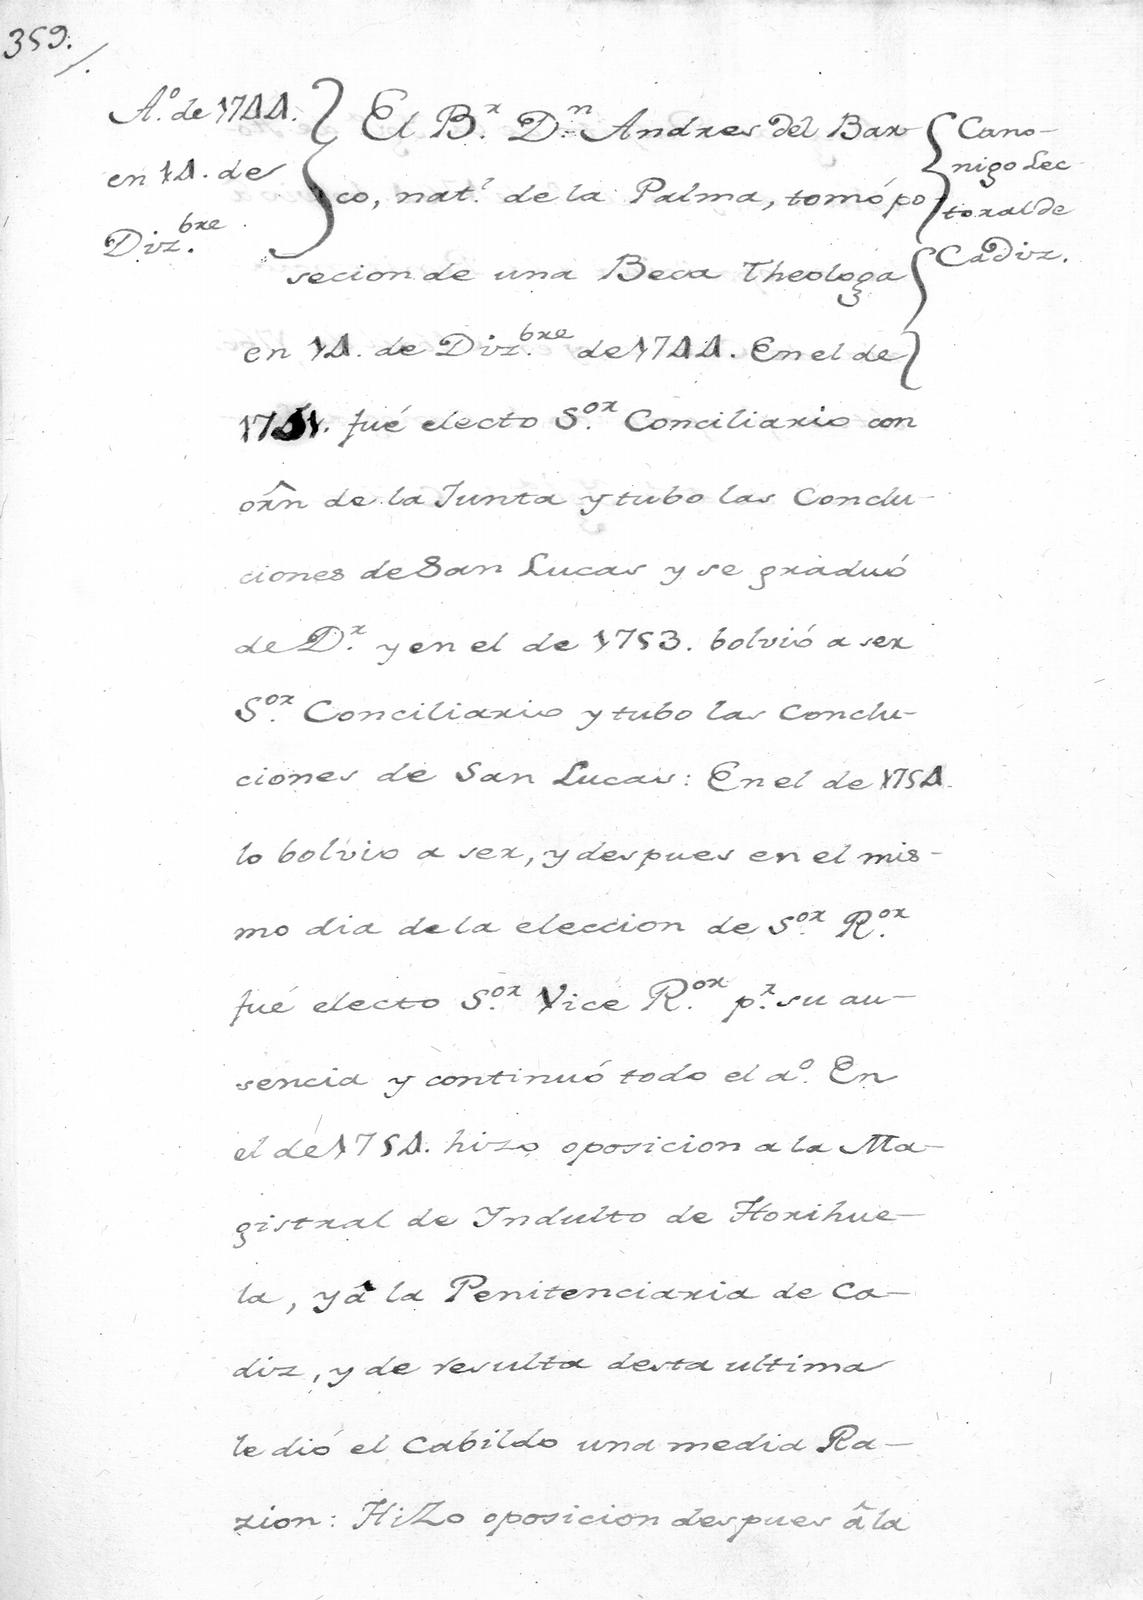 359.
A.º de 1744.
en 14. de
Diz.bre
El B.r D.n Andres del Bar
co, nat.l de la Palma, tomó po
secion de una Beca Theologa
en 14. de Diz.bre de 1744. En el de
fué electo S.or Conciliario con
orn de la Junta y tubo las Conclu-
ciones de San Lucas y se graduó
de D.r y en el de 1753. bolvió a ser
S.or Conciliario y tubo las Conclu-
ciones de San Lucas: En el de 1754.
lo bolvio a ser, y despues en el mis-
mo dia de la eleccion de S.or R.or
fué electo S.or Vice R.or p.r su au-
sencia y continuó todo el aº. En
el de 1754. hizo oposicion a la Ma-
gistral de Yndulto de Horihue-
la, y â la Penitenciaria de Ca-
diz, y de resulta desta ultima
le dió el Cabildo una media Ra-
zion: HiZo oposicion despues â la
Cano-
nigo Lec
toral de
Cadiz.